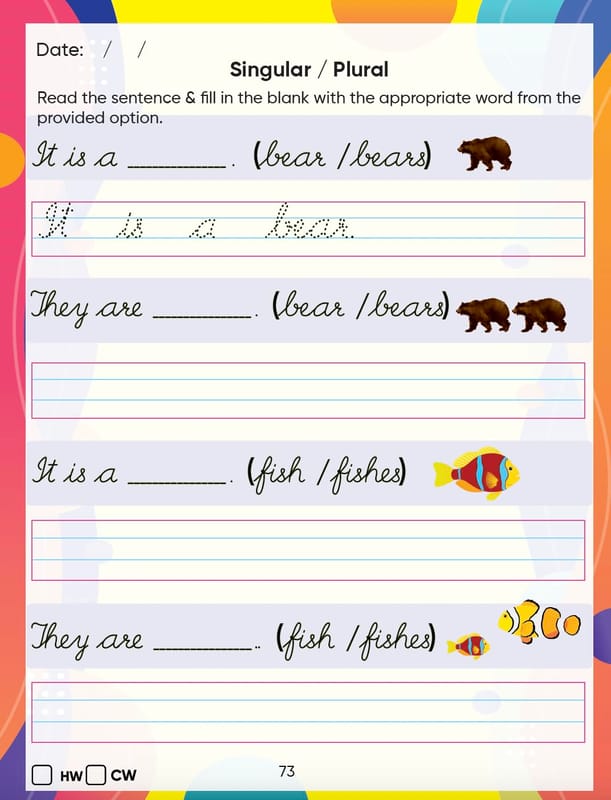 Date: / /
Singular / Plural
Read the sentence & fill in the blank with the appropriate word from the
provided option.
It is a ____________ . (bear / bears)
It is a bear.
They are ____________ . (bear / bears)
It is a ____________ . (fish / fishes)
They are ____________ .. (fish / fishes)
HW CW
73